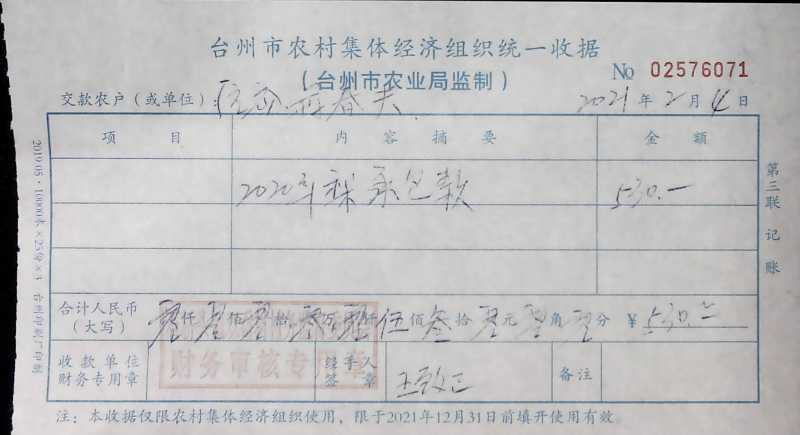 台州市农村集体经济组织统一收据
（台州市农业局监制） No 02576071
交款农户（或单位）： 2021年2月4日
项目 内容摘要 金额
2020年 承包款 530.一
合计人民币（大写） 零仟零佰零拾零万零仟伍佰叁拾零元零角零分 ￥530.二
收款单位财务专用章 财务审核专用章 经手人签章 王 正 备注
注：本收据仅限农村集体经济组织使用，限于2021年12月31日前填开使用有效
第三联 记账
2019.05·10000本×25份×3 台州印刷厂印制